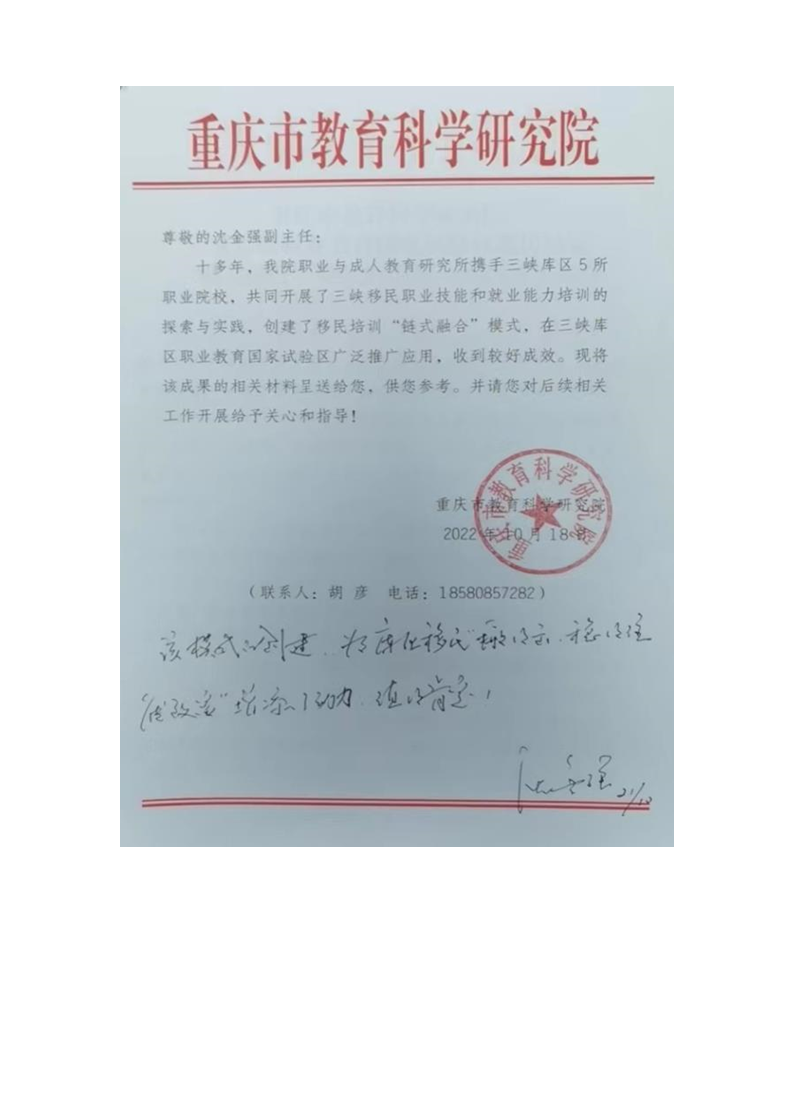 重庆市教育科学研究院
尊敬的沈金强副主任：
十多年，我院职业与成人教育研究所携手三峡库区5所
职业院校，共同开展了三峡移民职业技能和就业能力培训的
探索与实践，创建了移民培训“链式融合”模式，在三峡库
区职业教育国家试验区广泛推广应用，收到较好成效。现将
该成果的相关材料呈送给您，供您参考。并请您对后续相关
工作开展给予关心和指导！
重庆市教育科学研究院
2022年10月18日
重庆市教育科学研究院
（联系人：胡彦 电话：18580857282）
该模式的创建，为库区移民“搬得出、稳得住
能致富”增添了动力，值得肯定！
沈金强 21/10